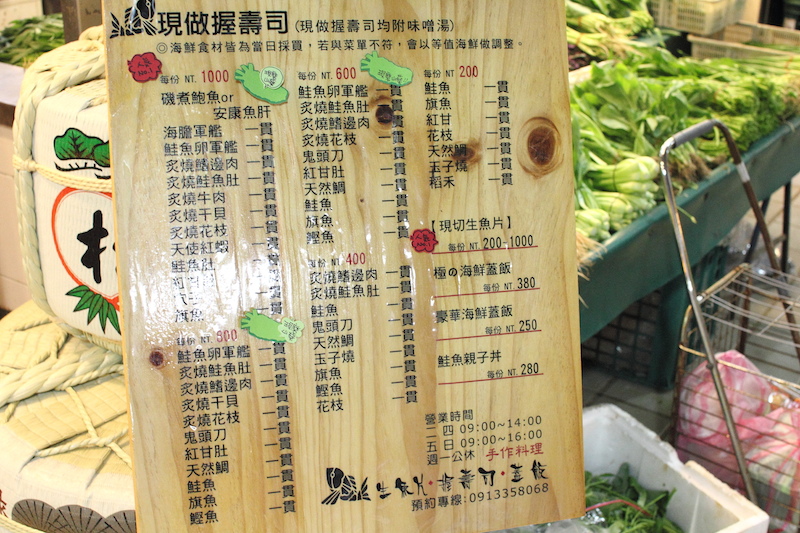 現做握壽司(現做握壽司均附味噌湯)
◎海鮮食材皆為當日採買，若與菜單不符，會以等值海鮮做調整。
人氣
每份 NT. 1000
磯煮鮑魚or
安康魚肝
海膽軍艦 一貫
鮭魚卵軍艦 一貫
炙燒鰭邊肉 一貫
炙燒鮭魚肚 一貫
炙燒牛肉 一貫
炙燒干貝 一貫
炙燒花枝 一貫
天使紅蝦 一貫
鮭魚肚 一貫
一貫
一貫
旗魚 一貫
每份 NT. 800
鮭魚卵軍艦 一貫
炙燒鮭魚肚 一貫
炙燒鰭邊肉 一貫
炙燒干貝 一貫
炙燒花枝 一貫
鬼頭刀 一貫
紅甘肚 一貫
天然鯛 一貫
鮭魚 一貫
旗魚 一貫
鰹魚 一貫
每份 NT. 600
鮭魚卵軍艦 一貫
炙燒鮭魚肚 一貫
炙燒鰭邊肉 一貫
炙燒花枝 一貫
鬼頭刀 一貫
紅甘肚 一貫
天然鯛 一貫
鮭魚 一貫
旗魚 一貫
鰹魚 一貫
每份 NT. 400
炙燒鰭邊肉 一貫
炙燒鮭魚肚 一貫
鮭魚 一貫
鬼頭刀 一貫
天然鯛 一貫
玉子燒 一貫
旗魚 一貫
鰹魚 一貫
花枝 一貫
每份 NT. 200
鮭魚 一貫
旗魚 一貫
紅甘 一貫
花枝 一貫
天然鯛 一貫
玉子燒 一貫
稻禾 一貫
【現切生魚片】
每份 NT. 200-1000
極の海鮮蓋飯
每份 NT. 380
豪華海鮮蓋飯
每份 NT. 250
鮭魚親子丼
每份 NT. 280
營業時間
二四 09:00~14:00
五日 09:00~16:00
週一公休 手作料理
生魚片·握壽司·蓋飯
預約專線:0913358068